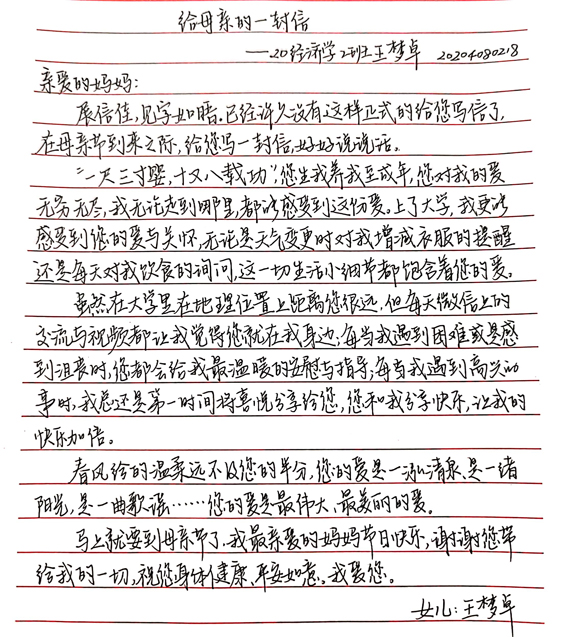 给母亲的一封信
——20经济学2班王梦卓 20204080218
亲爱的妈妈:
展信佳,见字如晤。已经许久没有这样正式的给您写信了,
在母亲节到来之际,给您写一封信,好好说说话。
“一尺三寸婴,十又八载功”,您生我养我至成年,您对我的爱
无穷无尽,我无论走到哪里,都能感受到这份爱。上了大学,我更能
感受到您的爱与关怀,无论是天气变更时对我增减衣服的提醒
还是每天对我饮食的询问,这一切生活小细节都饱含着您的爱。
虽然在大学里在地理位置上距离您很远,但每天微信上的
交流与视频都让我觉得您就在我身边,每当我遇到困难或是感
到沮丧时,您都会给我最温暖的安慰与指导;每当我遇到高兴的
事时,我总还是第一时间将喜悦分享给您,您和我分享快乐,让我的
快乐加倍。
春风给的温柔远不及您的半分,您的爱是一泓清泉,是一缕
阳光,是一曲歌谣……您的爱是最伟大、最美丽的爱。
马上就要到母亲节了,我最亲爱的妈妈节日快乐,谢谢您带
给我的一切,祝您身体健康,平安如意。我爱您。
女儿:王梦卓